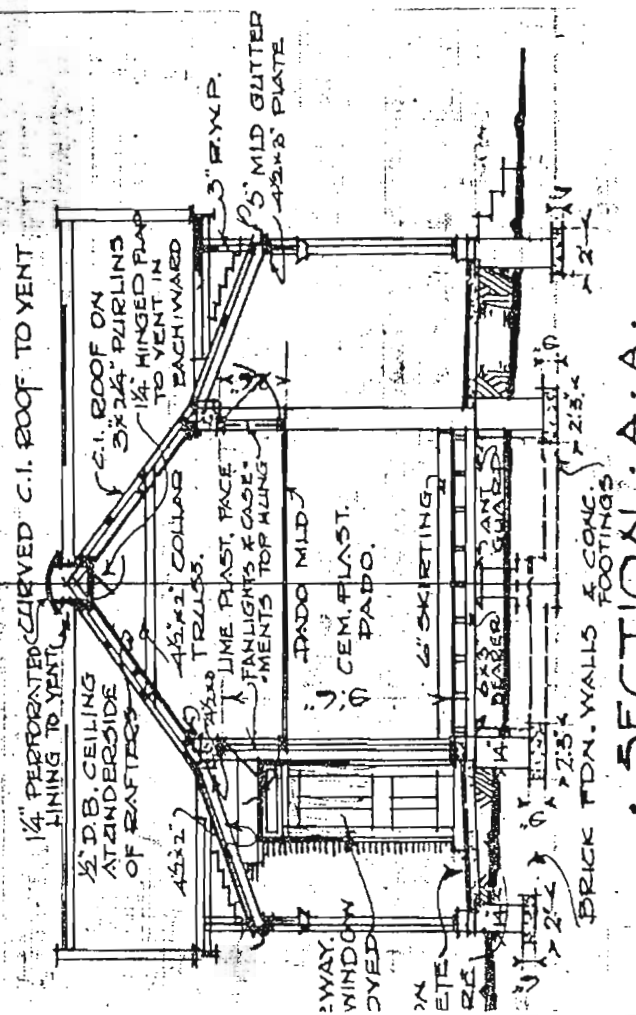 1¼" PERFORATED
LINING TO VENT
CURVED C.I. ROOF TO VENT
½" D.B. CEILING
AT UNDERSIDE
OF RAFTERS
C.I. ROOF ON
3"X2¼" PURLINS
1¼" HINGED FLAP
TO VENT IN
EACH WARD
3" R.W.P.
5" MLD GUTTER
4½"X3" PLATE
4½"X2"
4½"X2" COLLAR
TRUSS.
LIME PLAST. FACE
FANLIGHTS & CASE-
MENTS TOP HUNG
DADO MLD
CEM. PLAST.
DADO.
6" SKIRTING
6"X3"
BEARER
ANT
WAY.
WINDOW
OVED
ON
ETE
14"
14"
2'
2'.3"
2'.3"
2'
BRICK FDN. WALLS & CONC.
FOOTINGS
SECTION. A.A.